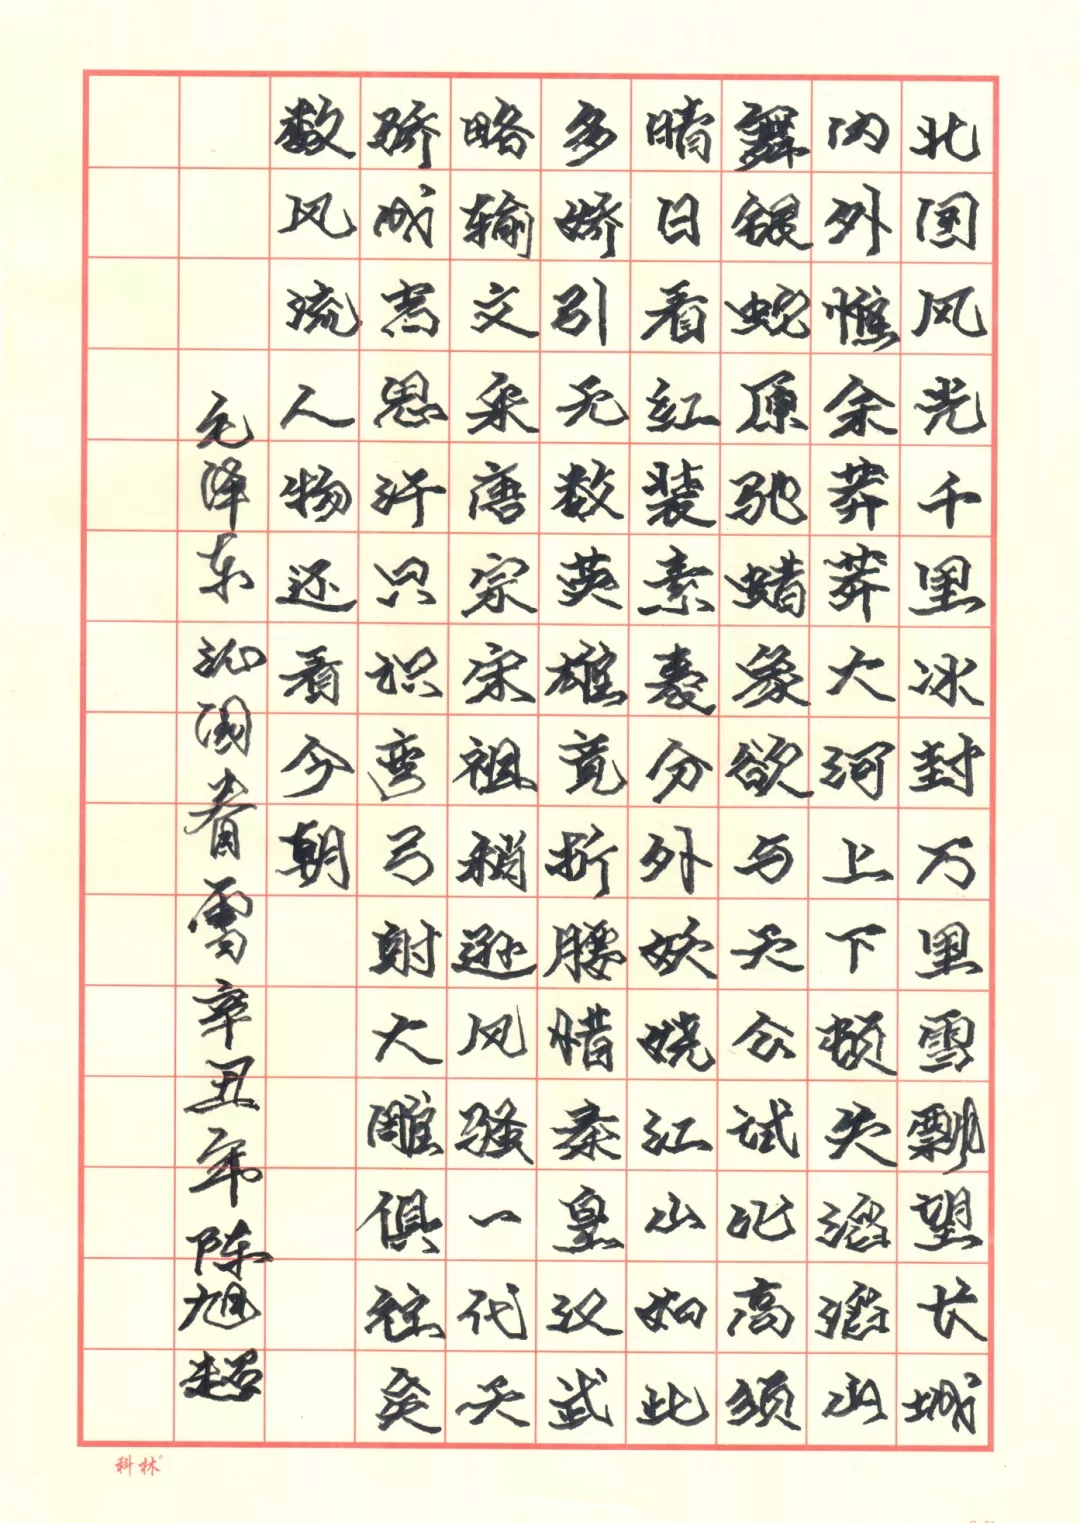 北国风光千里冰封万里雪飘望长城
内外惟余莽莽大河上下顿失滔滔山
舞银蛇原驰蜡象欲与天公试比高须
晴日看红装素裹分外妖娆江山如此
多娇引无数英雄竞折腰惜秦皇汉武
略输文采唐宗宋祖稍逊风骚一代天
骄成吉思汗只识弯弓射大雕俱往矣
数风流人物还看今朝
毛泽东沁园春雪辛丑年陈旭超
科林